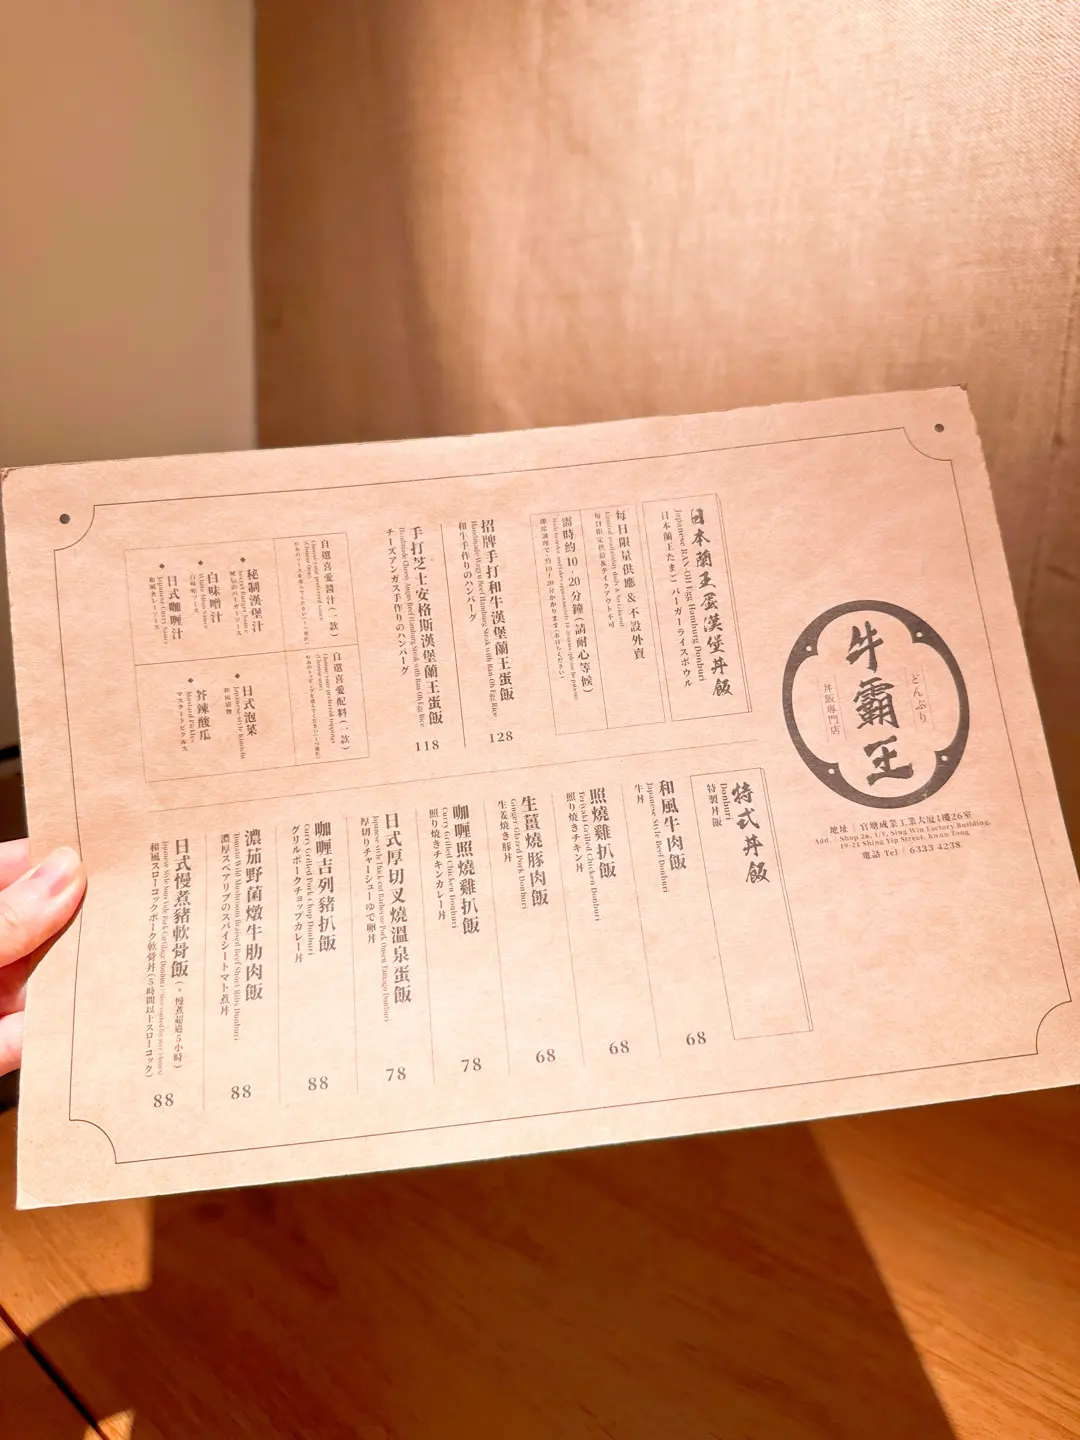 牛霸王
どんぶり
丼飯専門店
地址 | 官塘成業工業大廈1樓26室
Add. | Shop 26, 1/F, Sing Win Factory Building,
19-21 Shing Yip Street, Kwun Tong
電話 Tel | 6333 4238
日本蘭王蛋漢堡丼飯
Japanese RAN OH Egg Hamburg Donburi
日本蘭王たまご バーガーライスボウル
每日限量供應 & 不設外賣
Limited availability daily & No takeout
每日限定供給&テイクアウト不可
需時約 10 - 20 分鐘 (請耐心等候)
招牌手打和牛漢堡蘭王蛋飯
Handmade Wagyu Beef Hamburg Steak with Ran Oh Egg Rice
和牛手作りのハンバーグ
128
手打芝士安格斯漢堡蘭王蛋飯
Handmade Cheesy Angus Beef Hamburg Steak with Ran Oh Egg Rice
チーズアンガス手作りのハンバーグ
118
自選喜愛醬汁 (一款)
Choose your preferred sauce
(Choose one)
秘制漢堡汁
Secret Burger Sauce
白味噌汁
White Miso Sauce
白味噌ソース
日式咖喱汁
Japanese Curry Sauce
和風カレーソース
自選喜愛配料 (一款)
Choose your preferred toppings
(Choose one)
日式泡菜
Japanese-style Kimchi
和風漬物
芥辣酸瓜
Mustard Pickles
マスタードピクルス
特式丼飯
Donburi
特製丼飯
和風牛肉飯
Japanese Style Beef Donburi
牛丼
68
照燒雞扒飯
Teriyaki Grilled Chicken Donburi
照り焼きチキン丼
68
生薑燒豚肉飯
Ginger-Glazed Pork Donburi
生姜焼き豚丼
68
咖喱照燒雞扒飯
Curry Grilled Chicken Donburi
照り焼きチキンカレー丼
78
日式厚切叉燒溫泉蛋飯
Japanese-style Thick-cut Barbecue Pork Onsen Tamago Donburi
厚切りチャーシューゆで卵丼
78
咖喱吉列豬扒飯
Curry Grilled Pork Chop Donburi
グリルポークチョップカレー丼
88
濃加野菌燉牛肋肉飯
Tomato Wild Mushroom Braised Beef Short Ribs Donburi
濃厚スペアリブのスパイシートマト煮丼
88
日式慢煮豬軟骨飯 (*慢煮超過5小時)
和風スローコックポーク軟骨丼 (5時間以上スローコック)
88